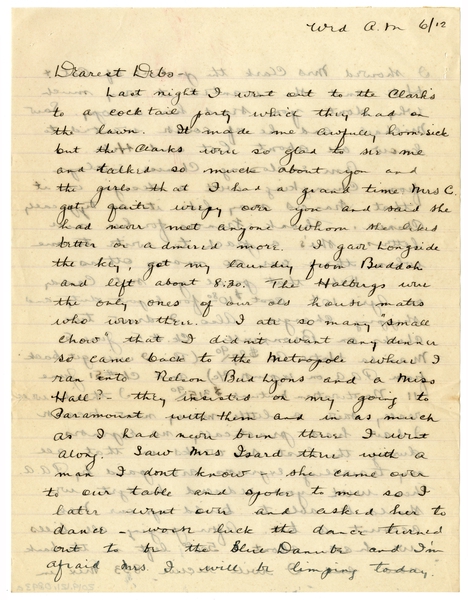 Wed A.M 6/12
Dearest Debs -
Last night I went out to the Clarks
to a cocktail party which they had on
the lawn. It made me awfully homesick
but the Clarks were so glad to see me
and talked so much about you and
the girls that I had a grand time. Mrs C.
got quite weepy over you and said she
had never met anyone whom she likes
better or admired more. I gave
the key, got my laundry from Buddah
and left about 8:30. The were
the only ones of our old house mates
who were there. I ate so many "small
chow" that I didnt want any dinner
so came back to the Metropole where I
ran into Nelson, Bud Lyons and a Miss
Hall? - they insisted on my going to
Paramount with them and in as much
as I had never been there I went
along. Saw Mrs Isard there with a
man I don't know - she came over
to our table and spoke to me so I
later went over and asked her to
dance - worse luck the dance turned
out to be the Blue Danube and I'm
afraid Mrs. I will be limping today.